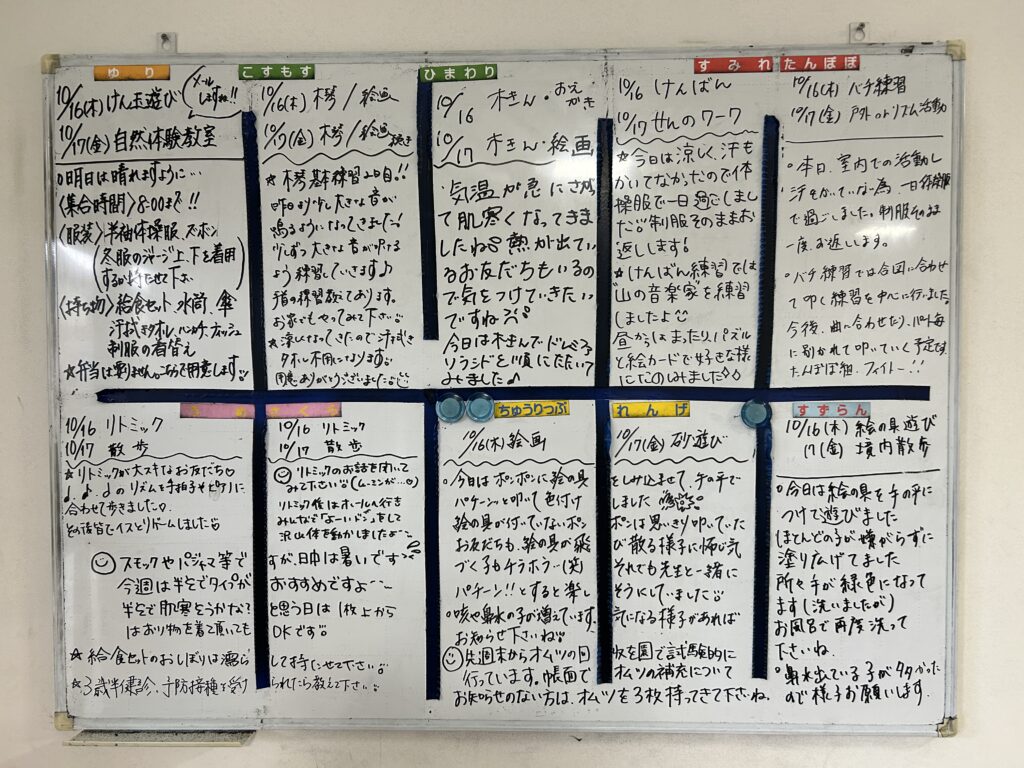 ゆり
10/16(木) けん玉遊び
メールしますね!!
10/17(金) 自然体験教室
○明日は晴れますように…
〈集合時間〉8:00まで!!
〈服装〉半袖体操服、ズボン
冬服のジャージ上、下を着用
するか持たせて下さい
〈持ち物〉給食セット、水筒、傘
汗拭きタオル、ハンカチ、ティッシュ
制服の着替え
★弁当は要りません。こちらで用意します
こすもす
10/16(木) 木琴/絵画
10/17(金) 木琴/絵画 続き
★木琴基本練習2日目!!
昨日より少し大きな音が
鳴るようになってきました!
少しずつ大きな音が叩ける
よう練習していきます♪
宿の練習教えております。
お家でもやってみて下さい
★涼しくなってきたので汗拭き
タオル不用になります
用意ありがとうございました
ひまわり
10/16 木きん・おえかき
10/17 木きん・絵画
気温が急にさがっ
て肌寒くなってきま
したね 熱が出てい
るお友だちもいるの
で気をつけていきたい
ですね
今日は木きんでドレミファ
ソラシドを順にたたいて
みせました♪
すみれ
10/16 けんばん
10/17 せんのワーク
★今日は涼しく、汗も
かいてなかったので体
操服で一日過ごしまし
た 制服そのままお
返しします
★けんばん練習では
"山の音楽家"を練習
しましたよ
昼からはまったり、パズル
と絵カードで好きな様
にたのしみました◇◇
たんぽぽ
10/16(木) バチ練習
10/17(金) 戸外orリズム活動
○本日、室内での活動し
汗をかいていな為、一日体操服
で過ごしました。制服そのまま
一度お返しします。
○バチ練習では合図に合わせ
て叩く練習を中心に行いました。
今後、曲に合わせたり、パート毎
に別かれて叩いていく予定です
たんぽぽ組、ファイトー!!
10/16 リトミック
10/17 散歩
★リトミックが大スキなお友だち♡
♩.♩.♩のリズムを手拍子やピアノに
合わせて歩きました♡
その後皆でイスとりゲームしました
さくら
10/16 リトミック
10/17 散歩
リトミックのお話を聞いて
みて下さい (ムーミンが…○)
リトミック後はホールへ行き
みんなで「よーいドン」をして
沢山体を動かしましたよ〜
スモックやパジャマ等で
すが、日中は暑いです
今週は半そでタイプが
おすすめですよ〜
半そで肌寒そうかな?
と思う日は1枚上から
はおり物を着て頂いても
OKです
★給食セットのおしぼりは濡ら
して持たせて下さい
★3歳半健診、予防接種を受け
られたら教えて下さい
ちゅうりっぷ
れんげ
10/16(木) 絵画
10/17(金) 砂遊び
○今日はポンポンに絵の具
をしみ込ませて、手の平で
パケーンッと叩いて色付け
しました
絵の具が付いていないポン
ポンは思いきり叩いていた
お友だちも、絵の具が飛
び散る様子に怖じ気
づく子もチラホラ…(笑)
それでも先生と一緒に
パケーン!!とすると楽し
そうにしていました
○咳や鼻水の子が増えています。
気になる様子があれば
お知らせ下さいね
先週末からオムツの回
収を園で試験的に
行っています。帳面で
オムツの補充について
お知らせのない方は、オムツを3枚持ってきて下さいね。
すずらん
10/16(木) 絵の具遊び
17(金) 境内散歩
○今日は絵の具を手の平に
つけて遊びました
ほとんどの子が嫌がらずに
塗り広げてました
所々手が緑色になって
ます(洗いましたが)
お風呂で再度洗って
下さいね
○鼻水出ている子が多かった
ので様子お願いします。